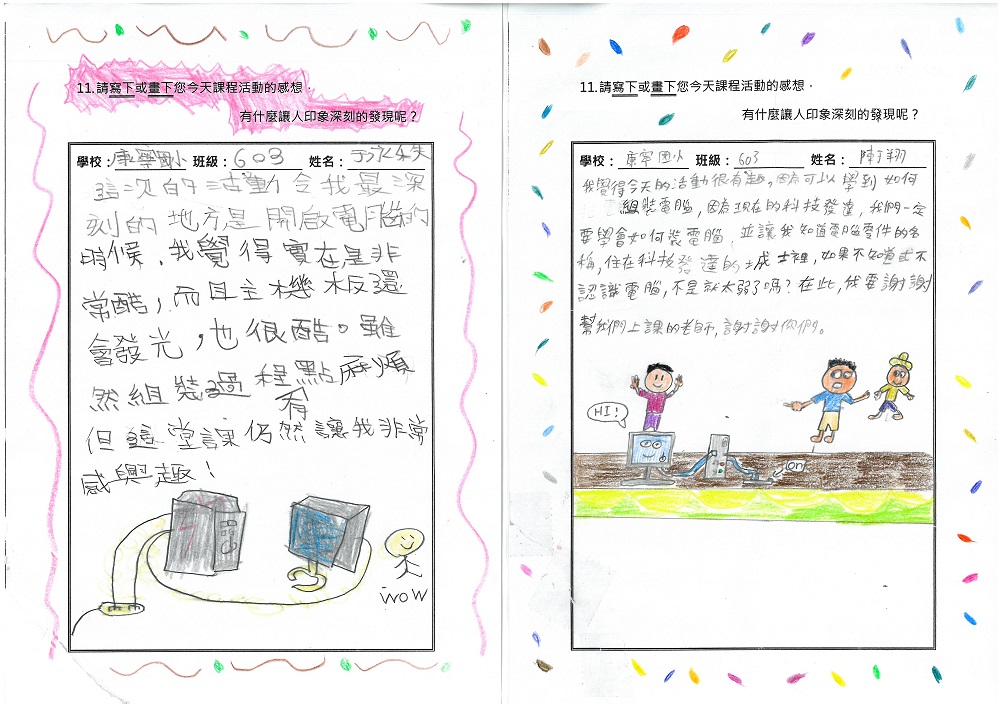 11.請寫下或畫下您今天課程活動的感想，
有什麼讓人印象深刻的發現呢？
學校：康寧國小 班級：603 姓名：
這次的活動令我最深
刻的地方是開啟電腦的
時候，我覺得實在是非
常酷，而且主機板還
會發光，也很酷。雖
然組裝過程有點麻煩
但這堂課仍然讓我非常
感興趣！
WOW
11.請寫下或畫下您今天課程活動的感想，
有什麼讓人印象深刻的發現呢？
學校：康寧國小 班級：603 姓名：陳丁翔
我覺得今天的活動很有趣，因為可以學到如何
組裝電腦，因為現在的科技發達，我們一定
要學會如何裝電腦，並讓我知道電腦零件的名
稱，住在科技發達的城市裡，如果不知道或不
認識電腦，不是就太弱了嗎？在此，我要謝謝
幫我們上課的老師，謝謝你們。
HI!
on